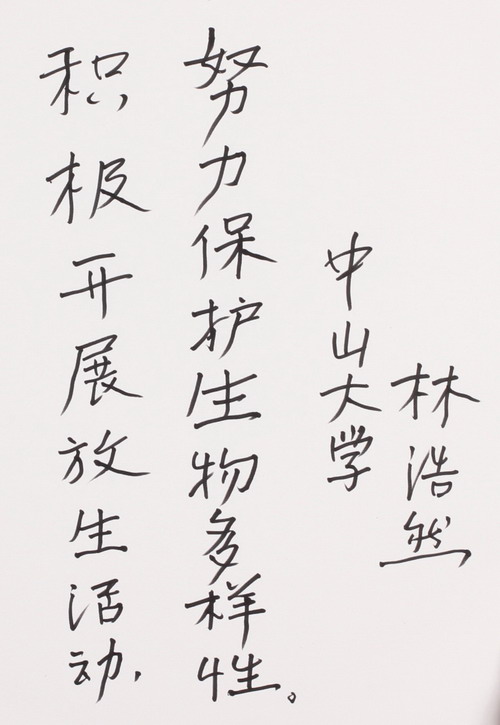 积极开展放生活动，
努力保护生物多样性。
中山大学
林浩然